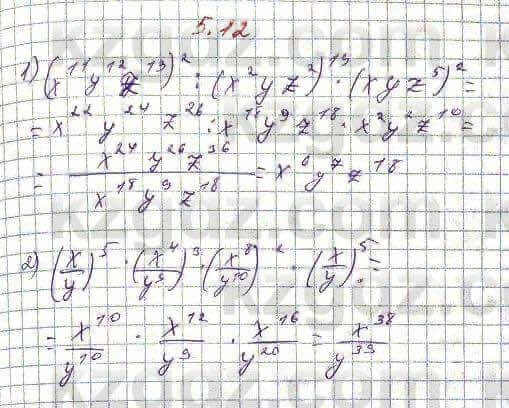 5.12
1) (x¹¹y¹²z¹³)² : (x²yz²)¹³ · (xyz⁵)² =
= x²² y²⁴ z²⁶ : x¹⁸y⁹z¹⁸ · x²y²z¹⁰ =
= x²⁴ y²⁶ z³⁶ / x¹⁸ y⁹ z¹⁸ = x⁶ y⁷ z¹⁸
2) (x/y)⁵ · (x⁴/y³)³ · (x⁸/y¹⁰)² · (x/y)⁵ =
= x¹⁰/y¹⁰ · x¹²/y⁹ · x¹⁶/y²⁰ = x³⁸/y³⁹
kzgdz.com